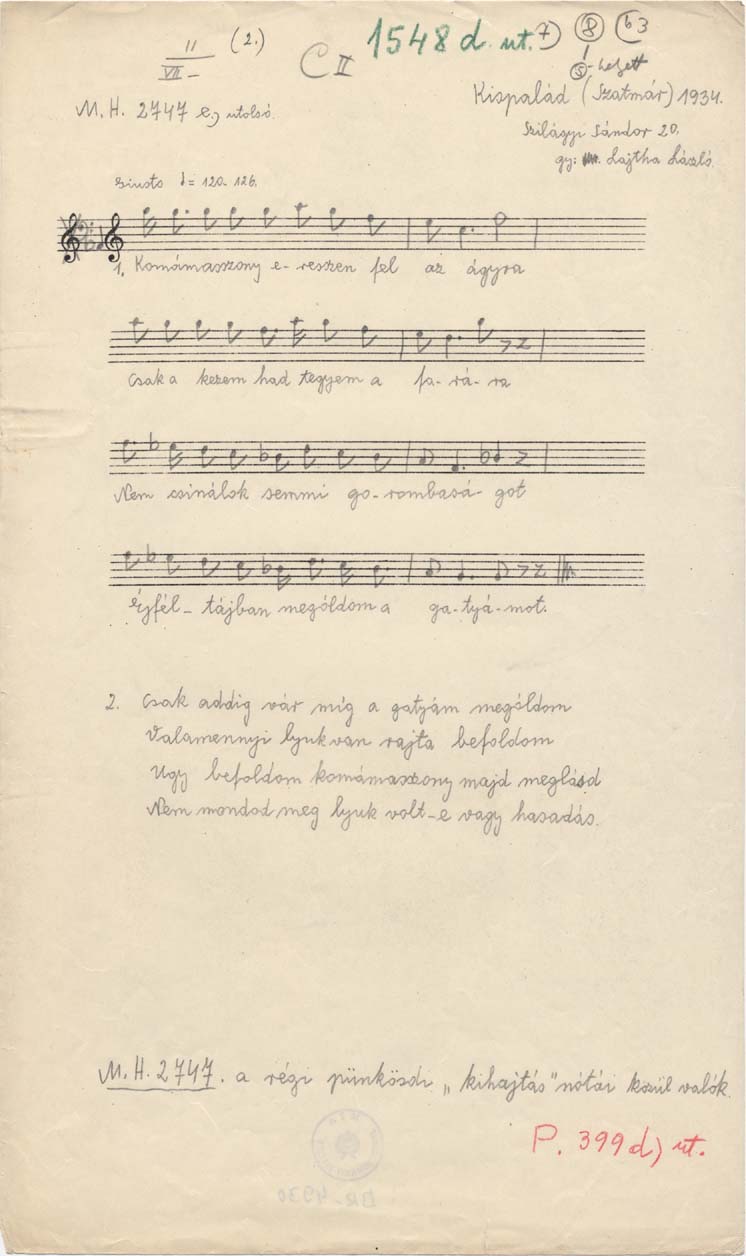 II (2.) C II 1548 d. ut. 7) 8 b3
VII - 5 - helyett
M. H. 2747 e, utolsó.
Kispalád (Szatmár) 1934.
Szilágyi Sándor 20.
gy: Lajtha László.
Giusto = 120-126.
1. Komámasszony e-resszen fel az ágyra
Csak a kezem had tegyem a fa-rá-ra
Nem csinálok semmi go-rombasá-got
Éjfél-tájban mególdom a ga-tyá-mot.
2. Csak addig vár míg a gatyám mególdom
Valamennyi lyuk van rajta befoldom
Ugy befoldom komámaszony majd meglásd
Nem mondod meg lyuk volt-e vagy hasadás.
M. H. 2747. a régi pünkösdi „kihajtás" nótái közül valók.
P. 399 d) ut.